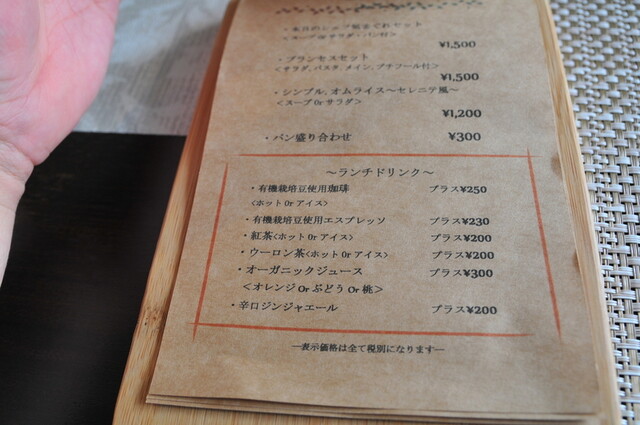 ・本日のシェフ気まぐれセット
＜スープ or サラダ・パン付＞
¥1,500
・プランセスセット
＜サラダ, パスタ, メイン, プチフール付＞
¥1,500
・シンプル, オムライス～セレニテ風～
＜スープ Or サラダ＞
¥1,200
・パン盛り合わせ ¥300
～ランチドリンク～
・有機栽培豆使用珈琲 プラス¥250
＜ホット Or アイス＞
・有機栽培豆使用エスプレッソ プラス¥230
・紅茶＜ホット Or アイス＞ プラス¥200
・ウーロン茶＜ホット Or アイス＞ プラス¥200
・オーガニックジュース プラス¥300
＜オレンジ Or ぶどう Or 桃＞
・辛口ジンジャエール プラス¥200
―表示価格は全て税別になります―